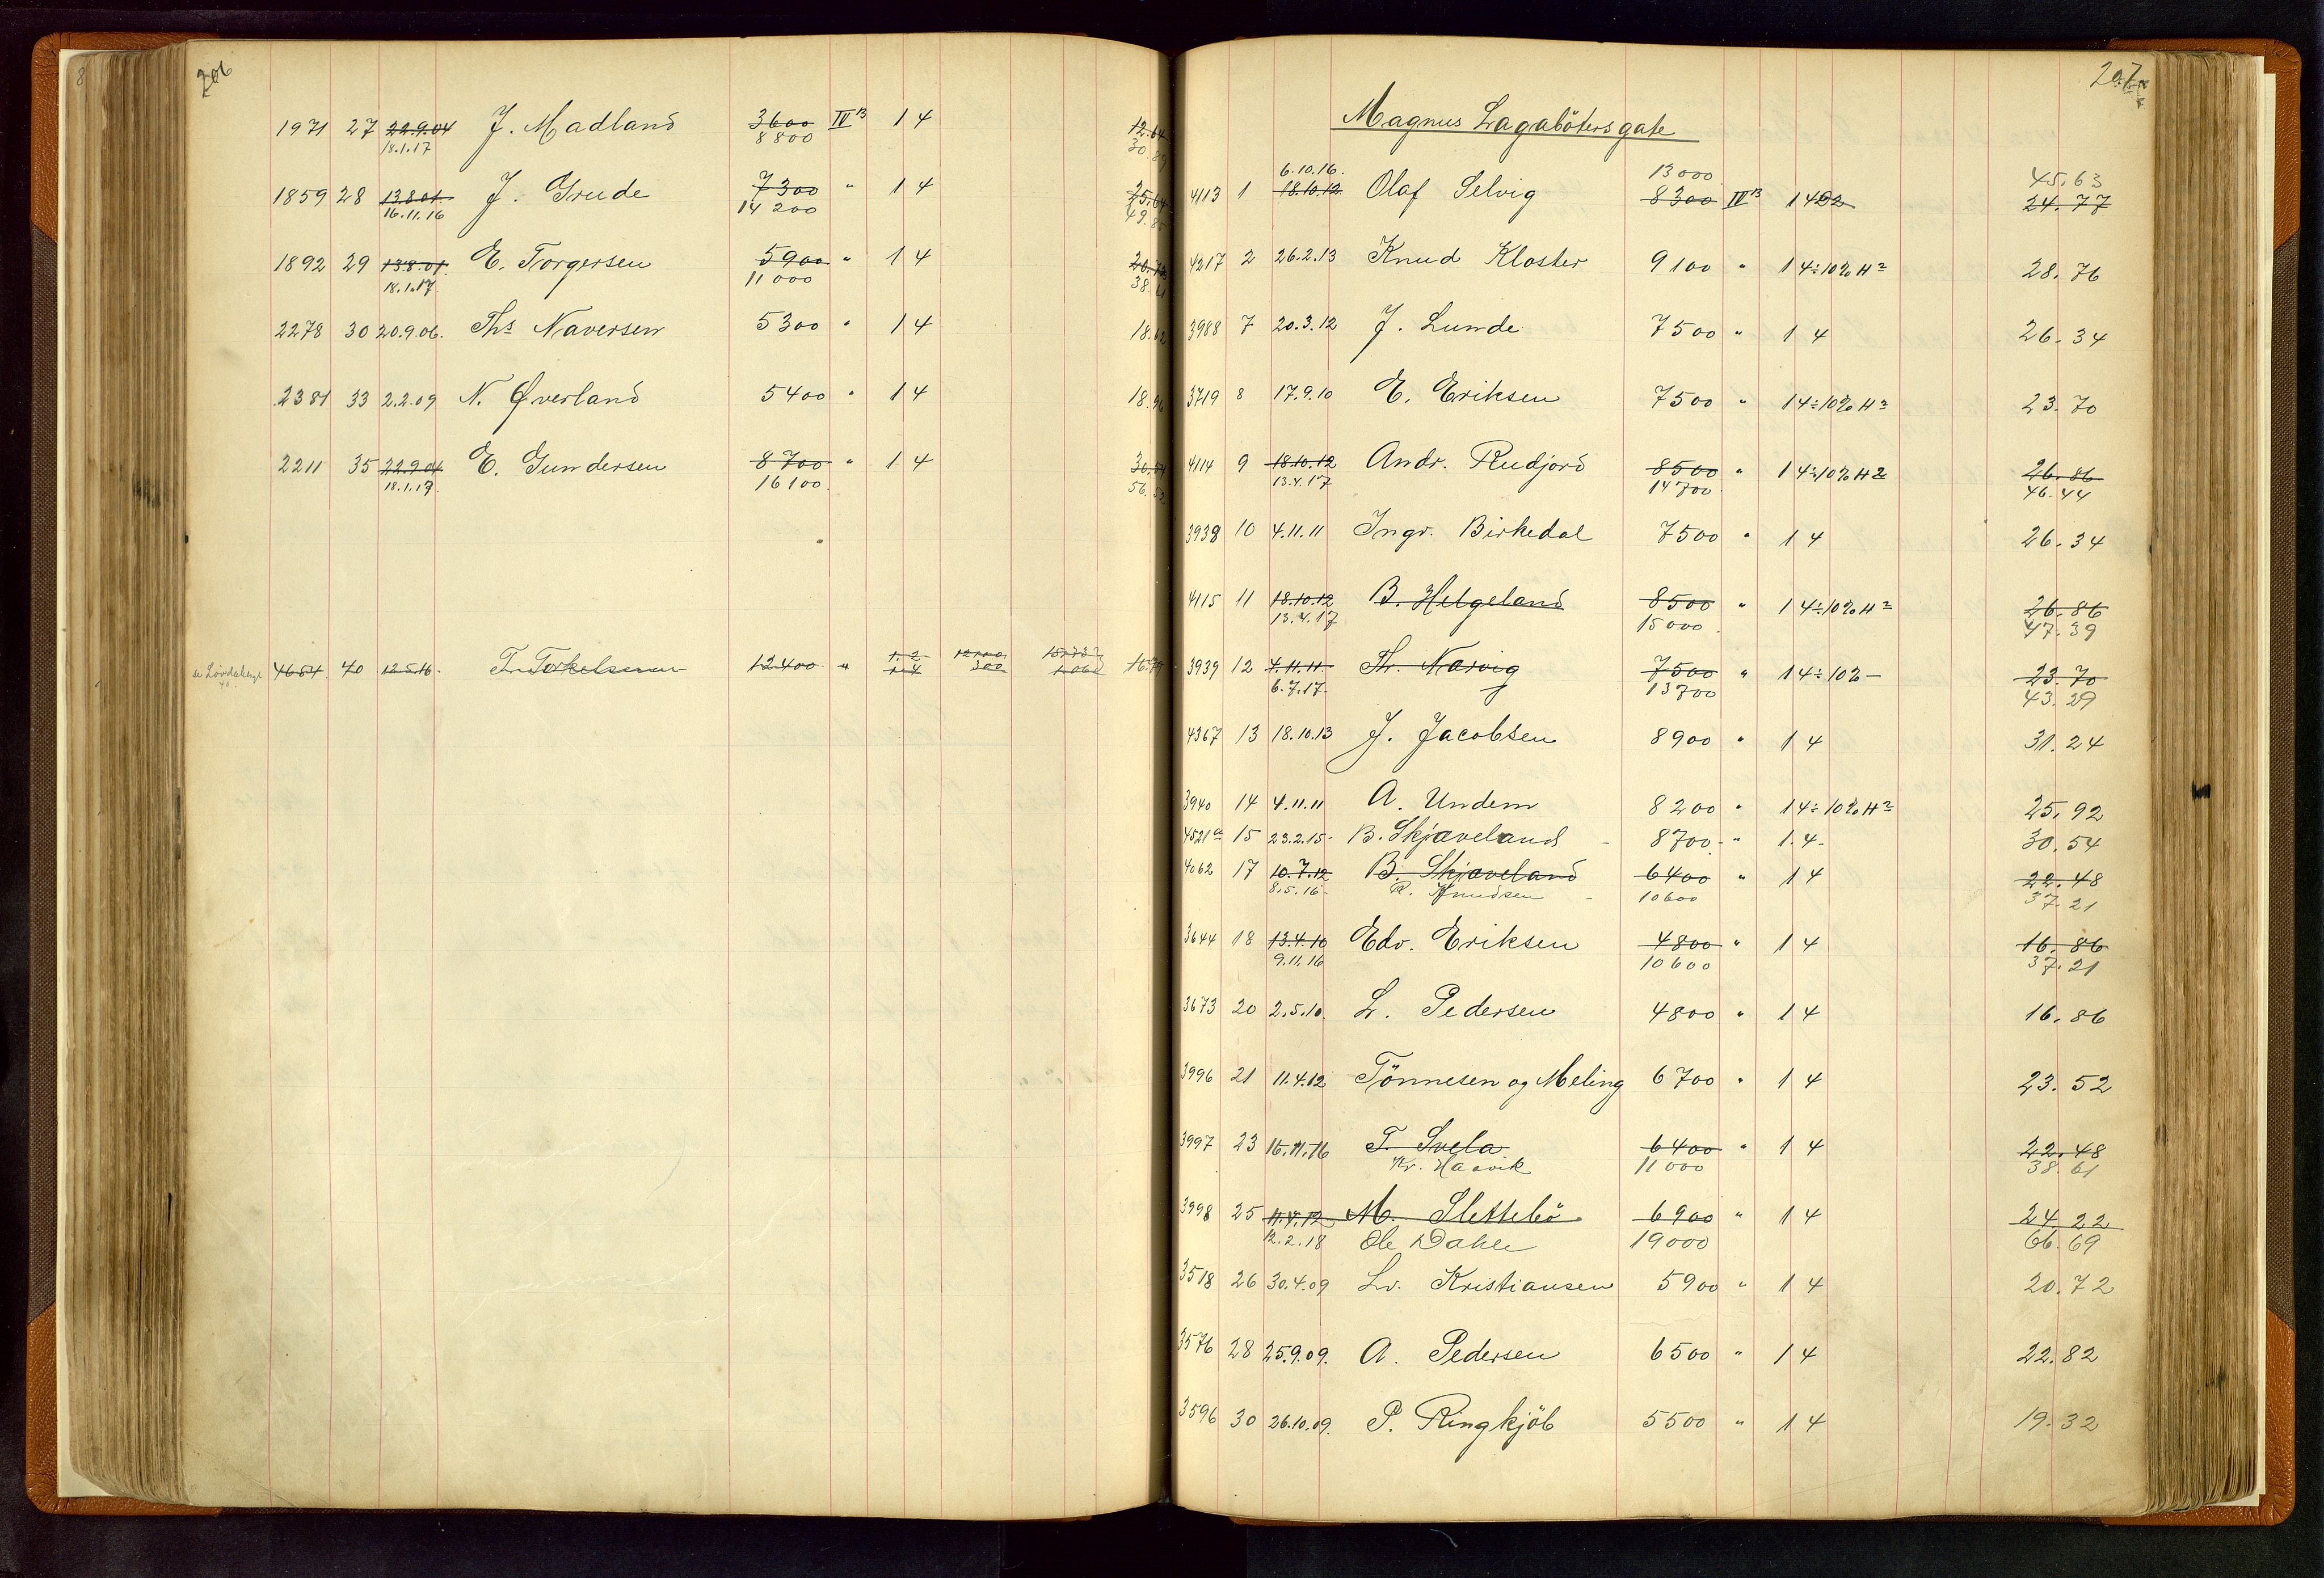 206
1971 27 22.9.04 J. Madland 3600 IV B 1 4 12.64
18.1.17 8800 30.89
1859 28 13.8.01 J. Grude 7300 " 1 4 25.64
16.11.16 14200 49.85
1892 29 13.8.01 E. Torgersen 5900 " 1 4 20.72
18.1.17 11000 38.61
2278 30 20.9.06. Ths Naversen 5300 " 1 4 18.62
2381 33 2.2.09 N. Øverland 5400 " 1 4 18.96
2211 35 22.9.04 E. Gundersen 8700 " 1 4 30.54
18.1.17 16100 56.52
4654 40 12.5.16. T. Torkelsen 12400 "
300
207
Magnus Lagabötersgate
6.10.16. 13000 45.63
4113 1 18.10.12 Olaf Selvig 8300 IV B 1 4 24.77
4217 2 26.2.13 Knud Kloster 9100 " 1 4 ÷ 10% H2 28.76
3988 7 20.3.12 J. Lunde 7500 " 1 4 26.34
3719 8 17.9.10 E. Eriksen 7500 " 1 4 ÷ 10% H2 23.70
4114 9 18.10.12 Andr. Rudjord 8500 " 1 4 ÷ 10% H2 26.86
13.4.17 14700 46.44
3938 10 4.11.11 Ingr. Birkedal 7500 " 1 4 26.34
4115 11 18.10.12 B. Helgeland 8500 " 1 4 ÷ 10% H2 26.86
13.4.17 15000 47.39
3939 12 4.11.11 Th. Narvig 7500 " 1 4 ÷ 10% 23.70
6.7.17 13700 43.29
4367 13 18.10.13 J. Jacobsen 8900 " 1 4 31.24
3940 14 4.11.11 A. Undem 8200 " 1 4 ÷ 10% H2 25.92
4521a 15 23.2.15 B. Skjæveland 8700 " 1.4 30.54
4062 17 10.7.12 B. Skjæveland 6400 " 1 4 22.48
8.5.16 R. Knudsen 10600 37.21
3644 18 13.4.10 Edv. Eriksen 4800 " 1 4 16.86
9.11.16 10600 37.21
3673 20 2.5.10. L. Pedersen 4800 " 1 4 16.86
3996 21 11.4.12 Tönnesen og Meling 6700 " 1 4 23.52
3997 23 16.11.16 T. Svela 6400 " 1 4 22.48
Kr. Haavik 11000 38.61
3998 25 11.4.12 M. Slettebö 6900 " 1 4 24.22
12.2.18 Ole Dahle 19000 66.69
3518 26 30.4.09 Lv. Kristiansen 5900 " 1 4 20.72
3576 28 25.9.09. A. Pedersen 6500 " 1 4 22.82
3596 30 26.10.09. P. Ringkjöb 5500 " 1 4 19.32